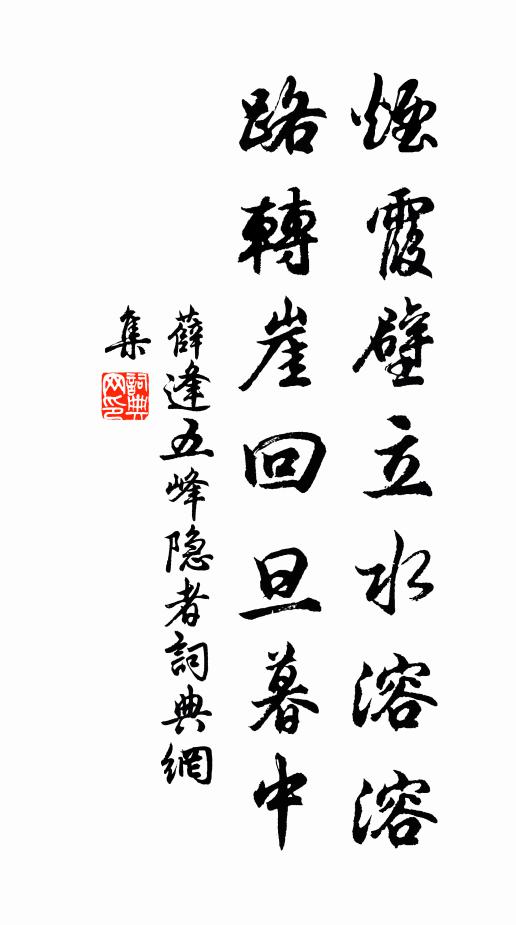 煙霞壁立水溶溶
路轉崖回旦暮中
薛逢五峰隐者詞典網
集
詞典
网印